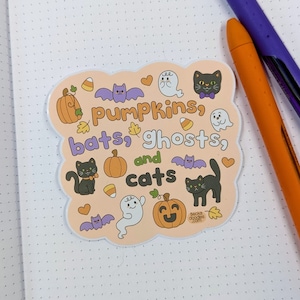 pumpkins,
bats, ghosts,
and
cats